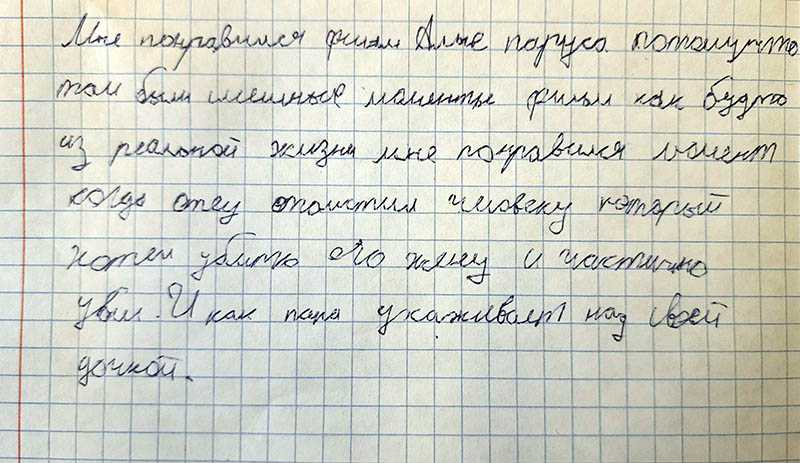 Мне понравился фильм Алые паруса потомучто
там были смешные моменты фильм как будто
из реальной жизни мне понравился момент
когда отец отомстил человеку который
хотел убить его жену и частично
убил. И как папа ухаживает над своей
дочкой.